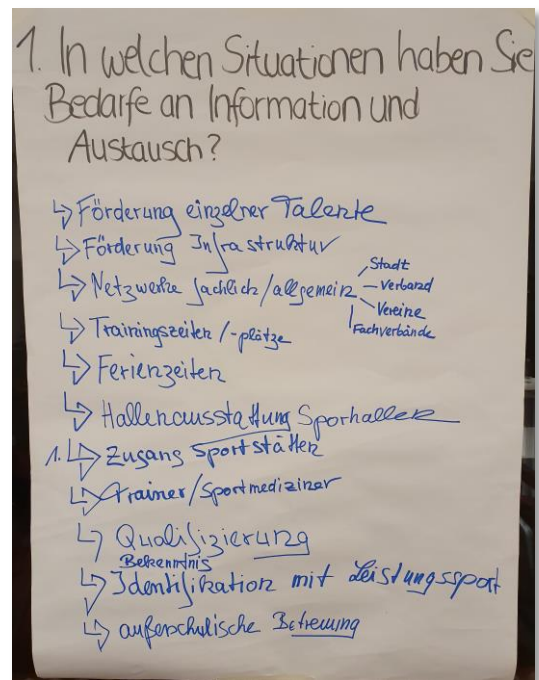 1. In welchen Situationen haben Sie
Bedarfe an Information und
Austausch?
↳ Förderung einzelner Talente
↳ Förderung Infrastruktur
↳ Netzwerke fachlich/allgemein
Stadt
Verband
Vereine
Fachverbände
↳ Trainingszeiten/-plätze
↳ Ferienzeiten
↳ Hallenausstattung Sporhallen
1. ↳ Zugang Sportstätten
↳ Trainer/Sportmediziner
↳ Qualifizierung
Bekenntnis
↳ Identifikation mit Leistungssport
↳ außerschulische Betreuung